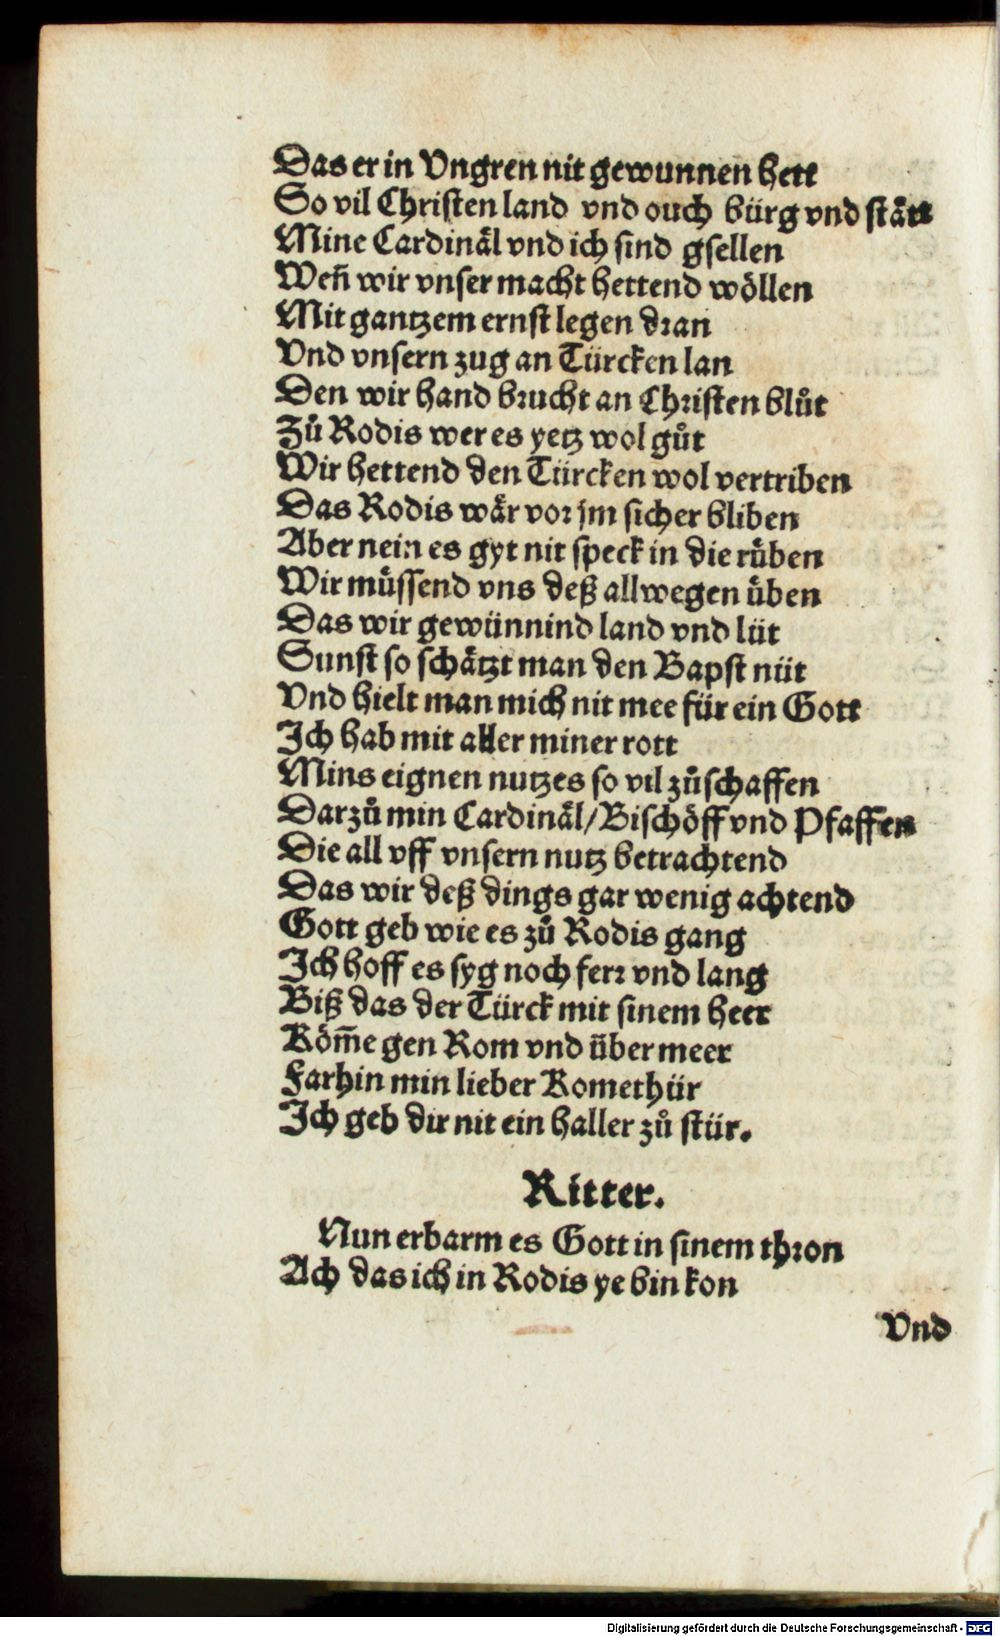 Das er in Vngren nit gewunnen hett
So vil Christen land vnd ouch bürg vnd stätt
Mine Cardinäl vnd ich sind gsellen
Weñ wir vnser macht hettend wöllen
Mit gantzem ernst legen dran
Vnd vnsern zug an Türcken lan
Den wir hand brucht an Christen blůt
Zů Rodis wer es yetz wol gůt
Wir hettend den Türcken wol vertriben
Das Rodis wär vor jm sicher bliben
Aber nein es gyt nit speck in die rüben
Wir müssend vns deß allwegen üben
Das wir gewünnind land vnd lüt
Sunst so schätzt man den Bapst nüt
Vnd hielt man mich nit mee für ein Gott
Ich hab mit aller miner rott
Mins eignen nutzes so vil zůschaffen
Darzů min Cardinäl/Bischöff vnd Pfaffen
Die all vff vnsern nutz betrachtend
Das wir deß dings gar wenig achtend
Gott geb wie es zů Rodis gang
Ich hoff es syg noch ferr vnd lang
Biß das der Türck mit sinem heer
Köm̃e gen Rom vnd über meer
Farhin min lieber Komethür
Ich geb dir nit ein haller zů stür.
Ritter.
Nun erbarm es Gott in sinem thron
Ach das ich in Rodis ye bin kon
Vnd
Digitalisierung gefördert durch die Deutsche Forschungsgemeinschaft - DFG